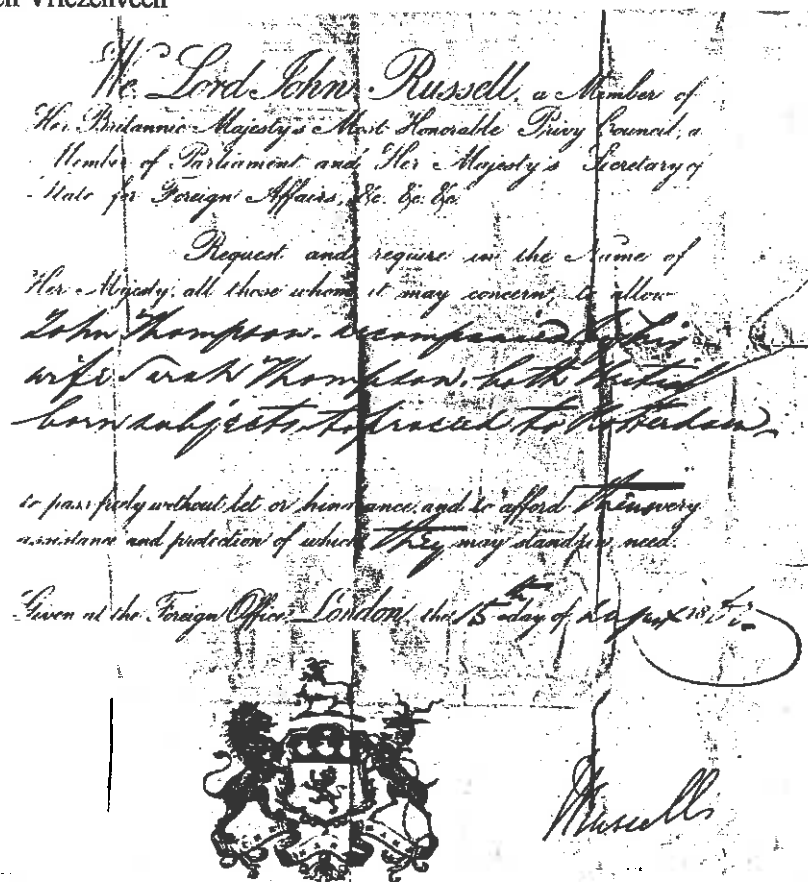 en Vriezenveen
We Lord John Russell, a Member of
Her Britannic Majesty's Most Honorable Privy Council, a
Member of Parliament and Her Majesty's Secretary of
State for Foreign Affairs, &c. &c. &c.
Request and require in the Name of
Her Majesty, all those whom it may concern, to allow
John Thompson accompanied by his
wife Sarah Thompson, both British
born subjects, to proceed to Rotterdam
to pass freely without let or hindrance, and to afford them every
assistance and protection of which they may stand in need.
Given at the Foreign Office, London, the 15th day of 18
CHE SARA SARA
JRussell